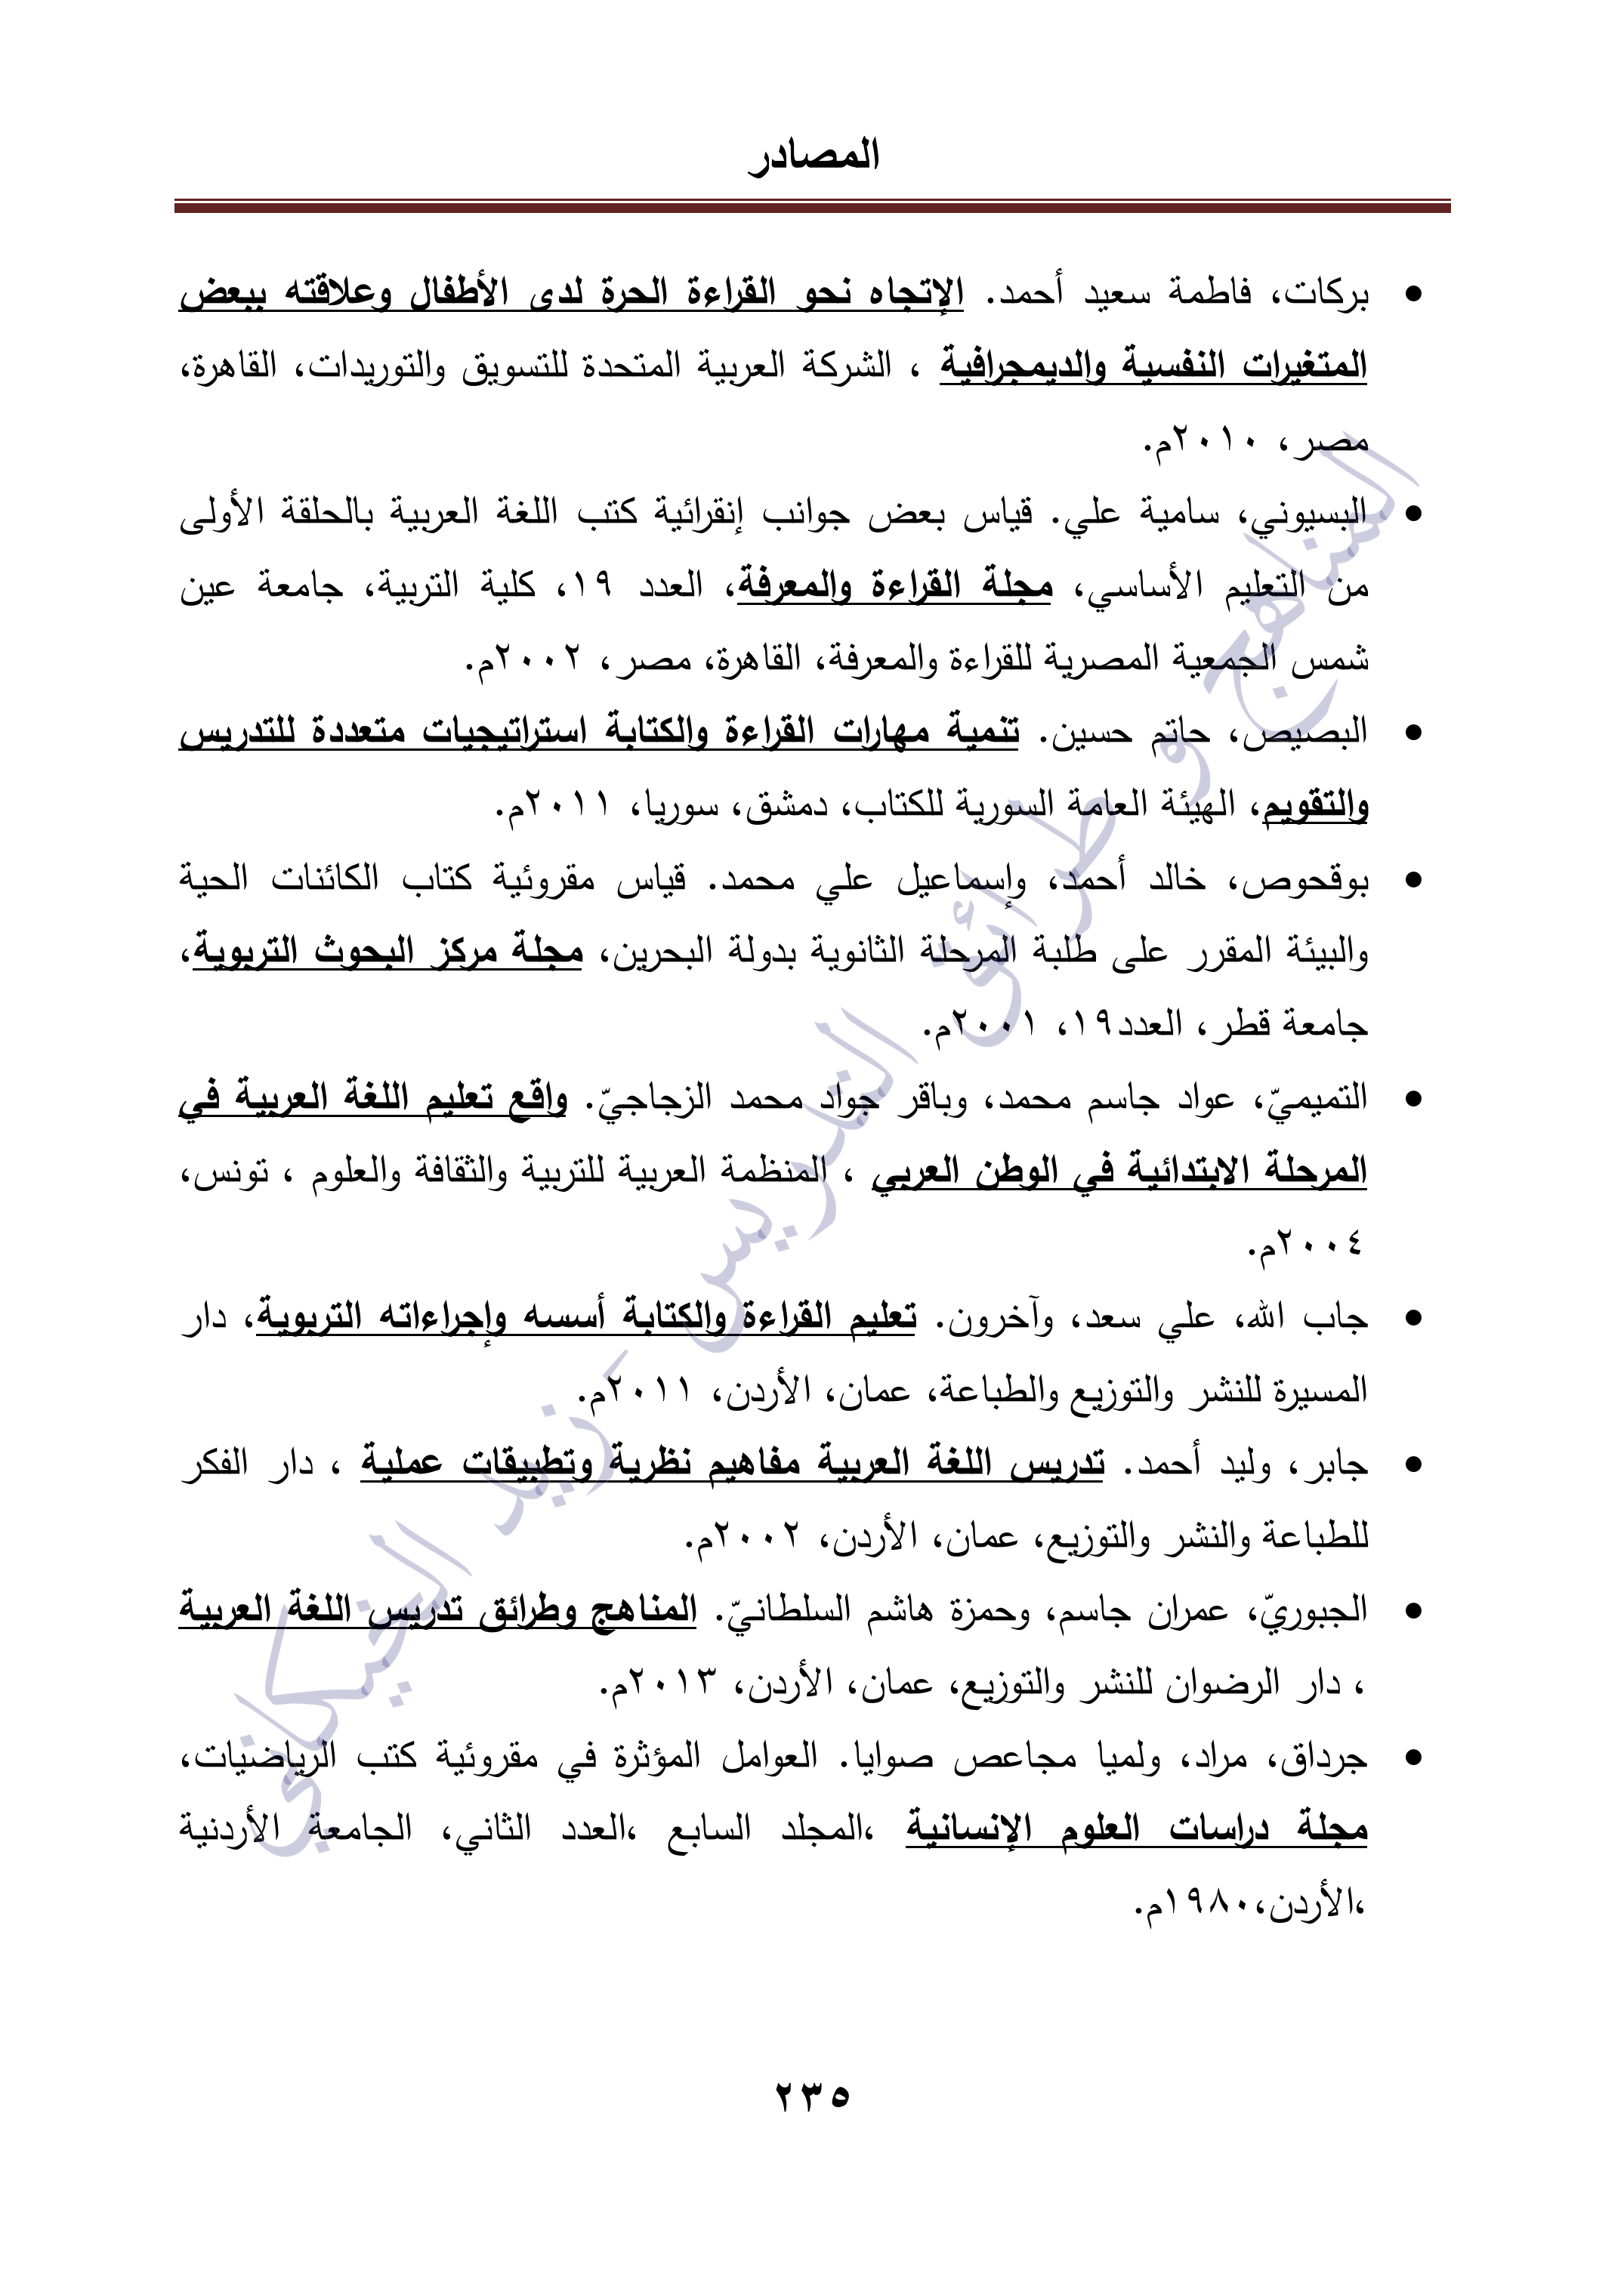 المصادر
• بركات، فاطمة سعيد أحمد. الإتجاه نحو القراءة الحرة لدى الأطفال وعلاقته ببعض
المتغيرات النفسية والديمجرافية ، الشركة العربية المتحدة للتسويق والتوريدات، القاهرة،
مصر، ٢٠١٠م.
• البسيوني، سامية علي. قياس بعض جوانب إنقرائية كتب اللغة العربية بالحلقة الأولى
من التعليم الأساسي، مجلة القراءة والمعرفة، العدد ١٩، كلية التربية، جامعة عين
شمس الجمعية المصرية للقراءة والمعرفة، القاهرة، مصر، ٢٠٠٢م.
• البصيص، حاتم حسين. تنمية مهارات القراءة والكتابة استراتيجيات متعددة للتدريس
والتقويم، الهيئة العامة السورية للكتاب، دمشق، سوريا، ٢٠١١م.
• بوقحوص، خالد أحمد، وإسماعيل علي محمد. قياس مقروئية كتاب الكائنات الحية
والبيئة المقرر على طلبة المرحلة الثانوية بدولة البحرين، مجلة مركز البحوث التربوية،
جامعة قطر، العدد١٩، ٢٠٠١م.
• التميميّ، عواد جاسم محمد، وباقر جواد محمد الزجاجيّ. واقع تعليم اللغة العربية في
المرحلة الابتدائية في الوطن العربي ، المنظمة العربية للتربية والثقافة والعلوم ، تونس،
٢٠٠٤م.
• جاب الله، علي سعد، وآخرون. تعليم القراءة والكتابة أسسه وإجراءاته التربوية، دار
المسيرة للنشر والتوزيع والطباعة، عمان، الأردن، ٢٠١١م.
• جابر، وليد أحمد. تدريس اللغة العربية مفاهيم نظرية وتطبيقات عملية ، دار الفكر
للطباعة والنشر والتوزيع، عمان، الأردن، ٢٠٠٢م.
• الجبوريّ، عمران جاسم، وحمزة هاشم السلطانيّ. المناهج وطرائق تدريس اللغة العربية
، دار الرضوان للنشر والتوزيع، عمان، الأردن، ٢٠١٣م.
• جرداق، مراد، ولميا مجاعص صوايا. العوامل المؤثرة في مقروئية كتب الرياضيات،
مجلة دراسات العلوم الإنسانية ،المجلد السابع ،العدد الثاني، الجامعة الأردنية
،الأردن،١٩٨٠م.
المناهج و طرائق التدريس - زيد الخيكاني
٢٣٥